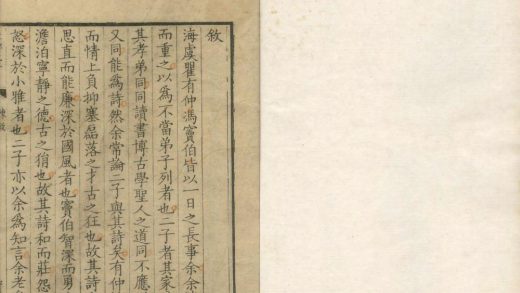 敘
海虞瞿有仲馮竇伯皆以一日之長事余余
而重之以爲不當弟子列者也二子者其家
其孝弟同同讀書博古學聖人之道同不應
又同能爲詩然余常論二子與其詩矣有仲
而情上負抑塞磊落之才古之狂也故其詩
思直而能廉深於國風者也竇伯智深而勇
澹泊寧靜之德古之狷也故其詩和而莊怨
怒深於小雅者也二子亦以余爲知言余老